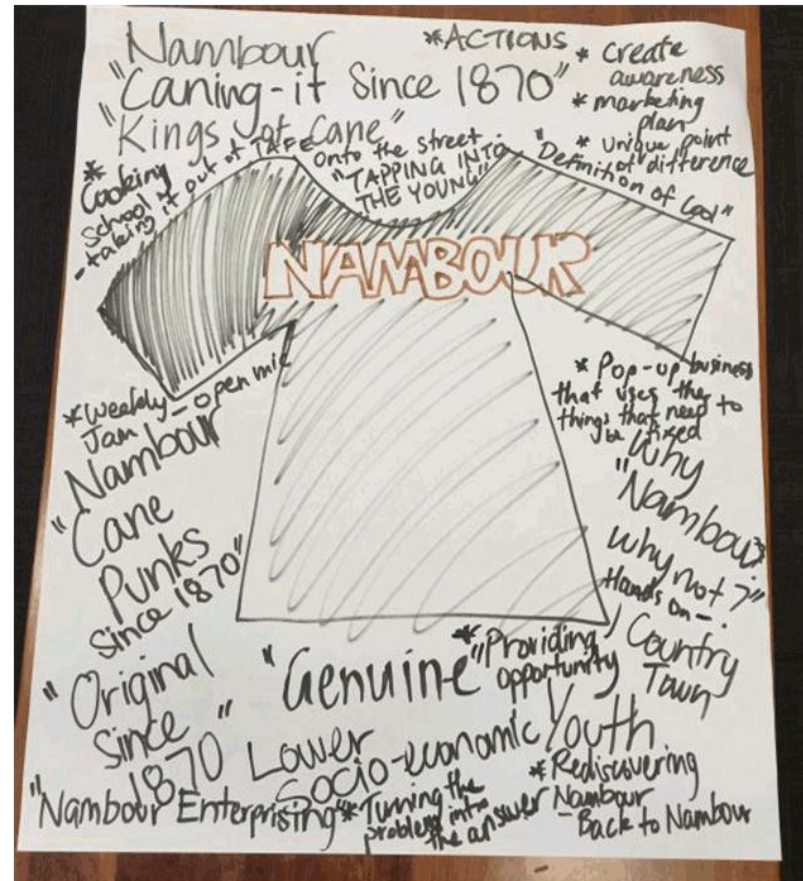 Nambour
"Caning-it Since 1870"
"Kings of Cane"
*ACTIONS
* Create
awareness
* marketing
plan
* Unique point
of difference
* Cooking
School
- taking it out of TAFE
onto the street
"TAPPING INTO
THE YOUNG"
"Definition of Cool"
NAMBOUR
*Weekly
Jam - open mic
Nambour
"Cane
Punks
Since 1870"
* Pop-up business
that uses the
things that need to
be fixed
Why
"Nambour?
Why not?"
Hands on -
Country
Town
"Original
Since
1870"
"Genuine"
*Providing
opportunity
Lower
Socio-economic Youth
"Nambour Enterprising"
*Turning the
problem into
the answer
* Rediscovering
Nambour
- Back to Nambour